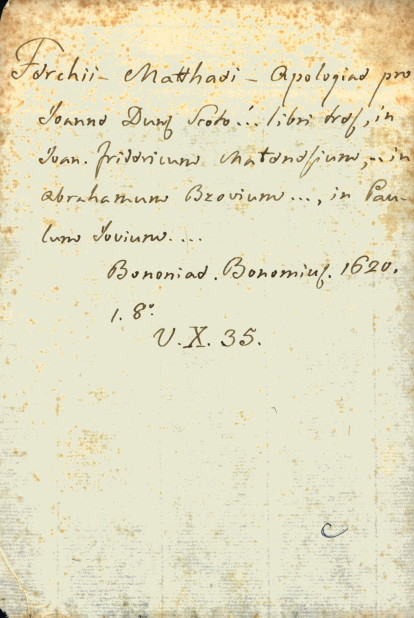 Ferchii - Matthaei - Apologiae pro
Joanne Duns Scoto... libri tres, in
Joan. Fridericum Matenesium,... in
Abrahamum Bzovium..., in Pau-
lum Jovium....
Bononiae. Bonomius. 1620.
1. 8°.
V. X. 35.